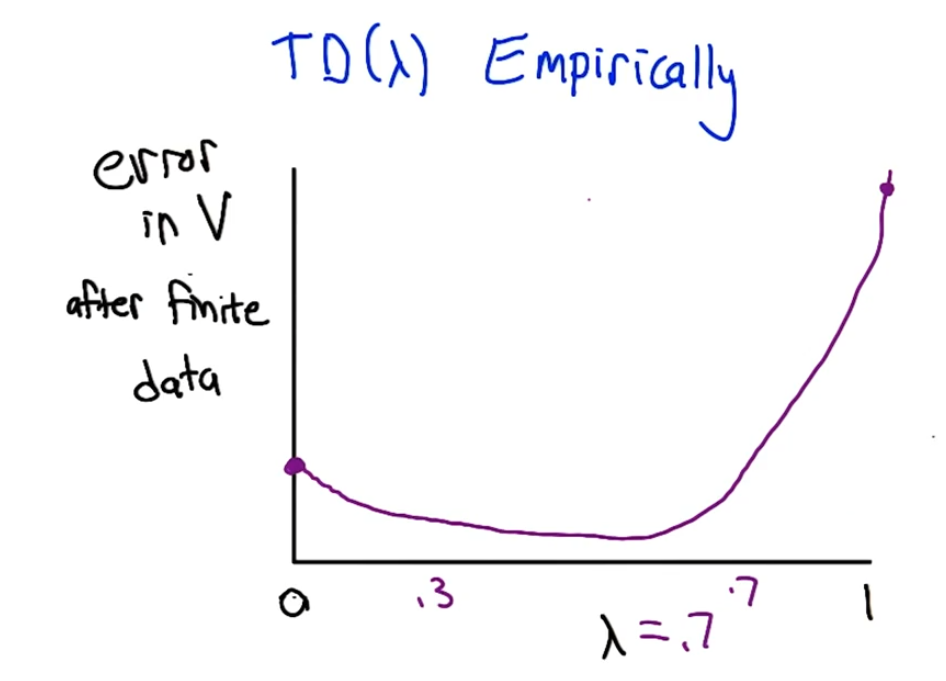 TD(λ) Empirically
error
in V
after finite
data
0 .3 .7 1
λ = .7